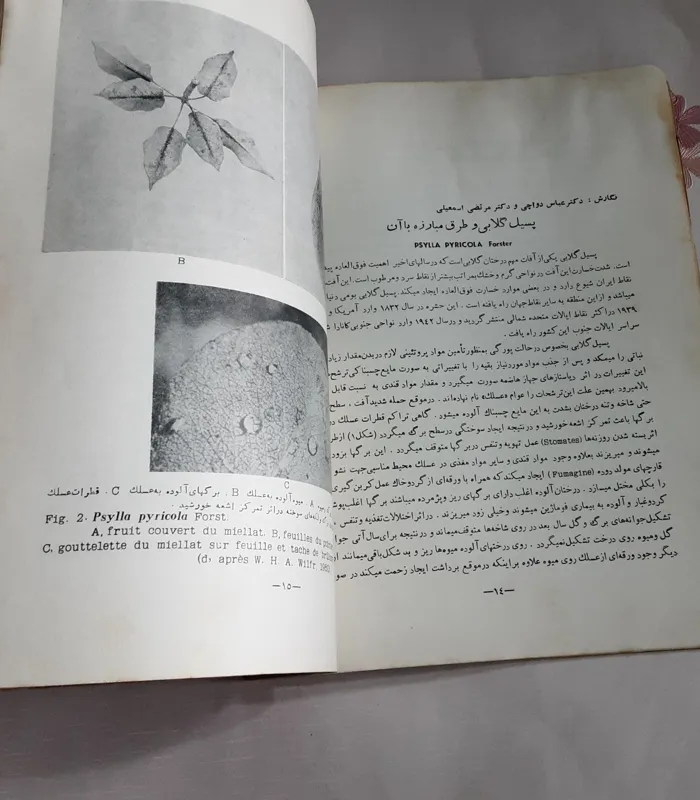 نگارش : دکتر عباس دواچی و دکتر مرتضی اسمعیلی
پسیل گلابی و طرق مبارزه با آن
PSYLLA PYRICOLA Forster
پسیل گلابی یکی از آفات مهم درختان گلابی است که در سالهای اخیر اهمیت فوق العاده
است. شدت خسارت این آفت در نواحی گرم و خشک بمراتب بیشتر از نقاط سرد و مرطوب است. این آفت
نقاط ایران شیوع دارد و در بعضی موارد خسارت فوق العاده ایجاد میکند. پسیل گلابی بومی
میباشد و از این منطقه به سایر نقاط جهان راه یافته است . این حشره در سال ۱۸۳۲ وارد آمریکا و
۱۹۳۹ در اکثر نقاط ایالات متحده شمالی منتشر گردید و در سال ۱۹۴۲ وارد نواحی جنوبی کانادا
سراسر ایالات جنوب این کشور راه یافت .
پسیل گلابی بخصوص در حالت پورگی بمنظور تأمین مواد پروتئینی لازم در بدن مقدار زیاد
نباتی را میمکد و پس از جذب مواد مورد نیاز بقیه را با تغییراتی به صورت مایع چسبناکی
این تغییرات در اثر دیاستازهای جهاز هاضمه صورت میگیرد و مقدار مواد قندی به نسبت قابل
بالا میرود بهمین علت این ترشحات را عوام «عسلک» نام نهاده‌اند . در موقع حمله شدید آفت ، سطح
حتی شاخه و تنه درختان بشدت به این مایع چسبناک آلوده میشود . گاهی تراکم قطرات عسلک در
برگها باعث تمرکز اشعه خورشید و در نتیجه ایجاد سوختگی در سطح برگ میگردد (شکل ۱)
اثر بسته شدن روزنه‌ها (Stomates) عمل تهویه و تنفس در برگها متوقف میگردد . این برگها بزودی
میشوند و میریزند بعلاوه وجود مواد قندی و سایر مواد مغذی در عسلک محیط مناسبی جهت
قارچهای مولد دوده (Fumagine) ایجاد میکند که همراه با ورقه‌ای از گرد و خاک عمل کربن گیری
را بکلی مختل میسازد . درختان آلوده اغلب دارای برگهای ریز و پژمرده میباشند برگها اغلب
گرد و غبار و آلوده به بیماری فوماژین میشوند و خیلی زود میریزند . در اثر اختلالات تغذیه و تنفس
تشکیل جوانه‌های برگ و گل سال بعد در روی شاخه‌ها متوقف میماند و در نتیجه برای سال آتی
گل و میوه روی درخت تشکیل نمیگردد . روی درختهای آلوده میوه‌ها ریز و بد شکل باقی میمانند
دیگر وجود ورقه‌ای از عسلک روی میوه علاوه بر اینکه در موقع برداشت ایجاد زحمت میکند در
—۱۴—
B
C
میوه آلوده به عسلک B . برگهای آلوده به عسلک C . قطرات عسلک
سوخته در اثر تمرکز اشعه خورشید .
Fig. 2. Psylla pyricola Forst.
A, fruit couvert du miellat. B, feuilles du
C, gouttelette du miellat sur feuille et tache de
(d' après W. H. A.
—۱۵—